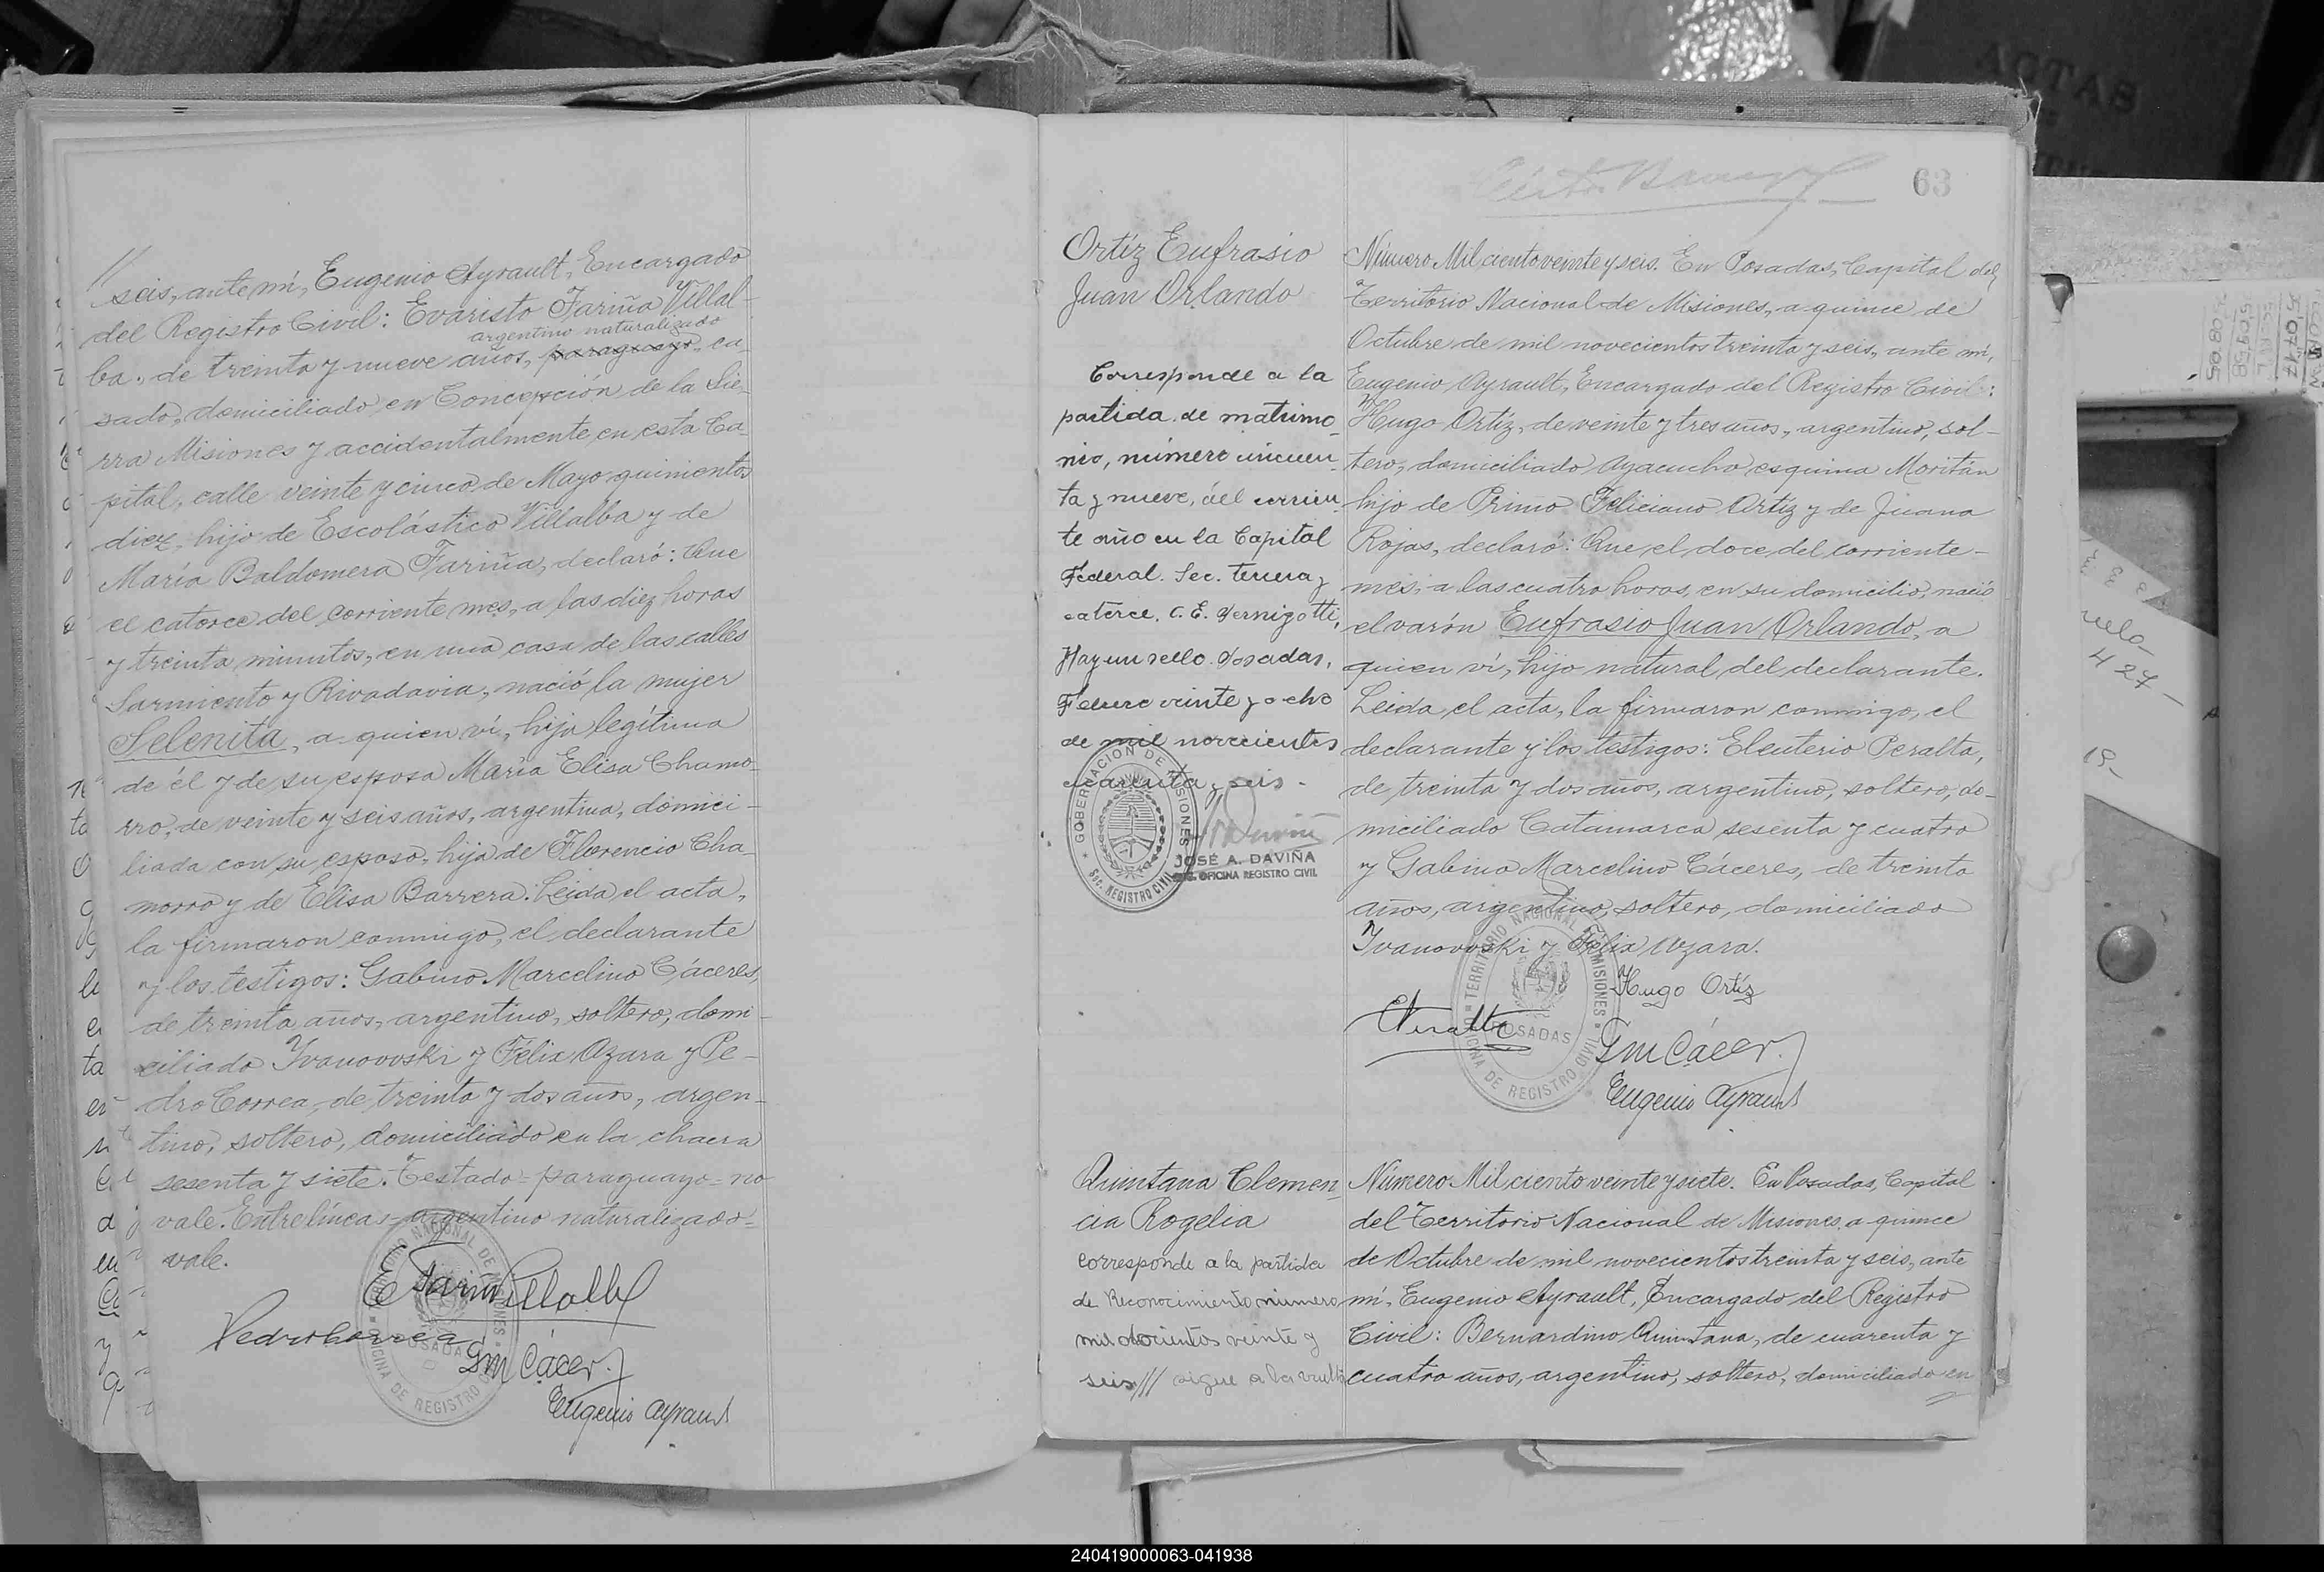 // seis, ante mí, Eugenio Ayrault, Encargado
del Registro Civil: Evaristo Fariña Villal-
argentino naturalizado
ba, de treinta y nueve años, paraguayo, ca-
sado, domiciliado en Concepción de la Sie-
rra Misiones y accidentalmente en esta Ca-
pital, calle veinte y cinco de Mayo quinientos
diez, hijo de Escolástico Villalba y de
María Baldomera Fariña, declaró: Que
el catorce del corriente mes, a las diez horas
y treinta minutos, en una casa de las calles
Sarmiento y Rivadavia, nació la mujer
Selenita, a quien ví, hija legítima
de él y de su esposa María Elisa Chamo-
rro, de veinte y seis años, argentina, domici-
liada con su esposo, hija de Florencio Cha-
morro y de Elisa Barrera. Leida el acta,
la firmaron conmigo, el declarante
y los testigos: Gabino Marcelino Cáceres,
de treinta años, argentino, soltero, domi-
ciliado Ivanovoski y Félix Azara y Pe-
dro Correa, de treinta y dos años, argen-
tino, soltero, domiciliado en la chacra
sesenta y siete. Testado=paraguayo=no
vale. Entre líneas=argentino naturalizado=
vale.
E Fariña Villalba
Pedro Correa
G M Cácer.
Eugenio Ayrault
TERRITORIO NACIONAL DE MISIONES
OFICINA DE REGISTRO CIVIL
POSADAS
63
Ortíz Eufrasio
Juan Orlando
Corresponde a la
partida de matrimo-
nio, número cincuen-
ta y nueve, del corrien-
te año en la Capital
Federal. Sec. tercera y
catorce. C. E. Vernigotti,
Hay un sello. Posadas,
Febrero veinte y ocho
de mil novecientos
cuarenta y seis -
GOBERNACION DE MISIONES
Sec. REGISTRO CIVIL
JOSÉ A. DAVIÑA
OFICINA REGISTRO CIVIL
Número Mil ciento veinte y seis. En Posadas, Capital del
Territorio Nacional de Misiones, a quince de
Octubre de mil novecientos treinta y seis, ante mí,
Eugenio Ayrault, Encargado del Registro Civil:
Hugo Ortíz, de veinte y tres años, argentino, sol-
tero, domiciliado Ayacucho esquina Moritán
hijo de Primo Feliciano Ortíz y de Juana
Rojas, declaró: Que el doce del corriente-
mes, a las cuatro horas, en su domicilio, nació
el varón Eufrasio Juan Orlando, a
quien ví, hijo natural del declarante.
Leida el acta, la firmaron conmigo, el
declarante y los testigos: Eleuterio Peralta,
de treinta y dos años, argentino, soltero, do-
miciliado Catamarca sesenta y cuatro
y Gabino Marcelino Cáceres, de treinta
años, argentino, soltero, domiciliado
Ivanovoski y Félix Azara.
Hugo Ortíz
EPeralta
G M Cácer.
Eugenio Ayrault
TERRITORIO NACIONAL DE MISIONES
OFICINA DE REGISTRO CIVIL
POSADAS
Quintana Clemen-
cia Rogelia
Corresponde a la partida
de Reconocimiento número
mil doscientos veinte y
seis /// sigue a la vuelta
Número Mil ciento veinte y siete. En Posadas, Capital
del Territorio Nacional de Misiones, a quince
de Octubre de mil novecientos treinta y seis, ante
mí, Eugenio Ayrault, Encargado del Registro
Civil: Bernardino Quintana, de cuarenta y
cuatro años, argentino, soltero, domiciliado en
240419000063-041938